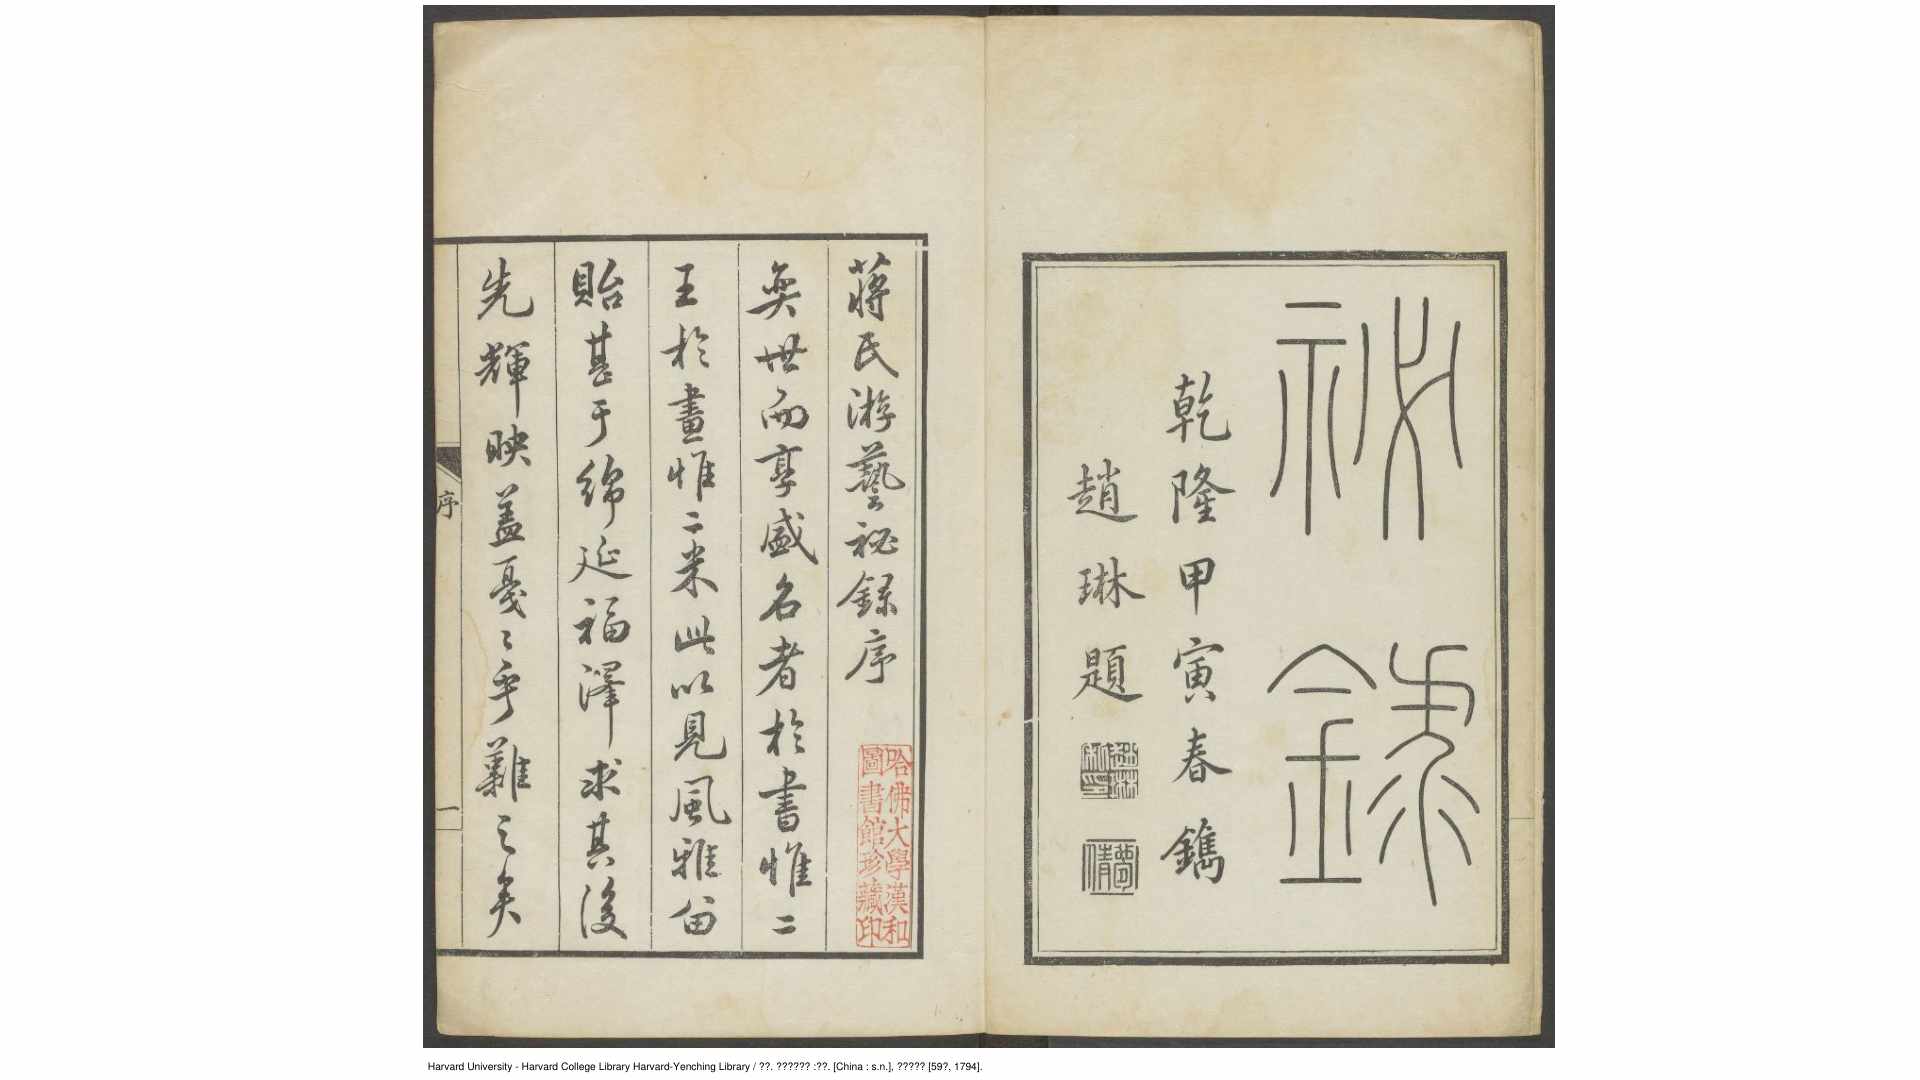 祕錄
乾隆甲寅春鐫
趙琳題
蔣氏游藝祕錄序
哈佛大學漢和
圖書館珍藏印
奕世而享盛名者於書惟二
王於畫惟二米此以見風雅留
貽甚于綿延福澤求其後
先輝映蓋戞〻乎難之矣
序
一
Harvard University - Harvard College Library Harvard-Yenching Library / ??. ?????? :??. [China : s.n.], ????? [59?, 1794].